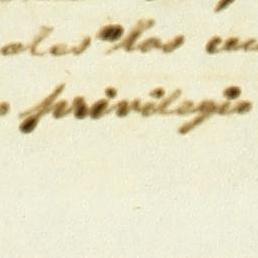 ales los
privilegio